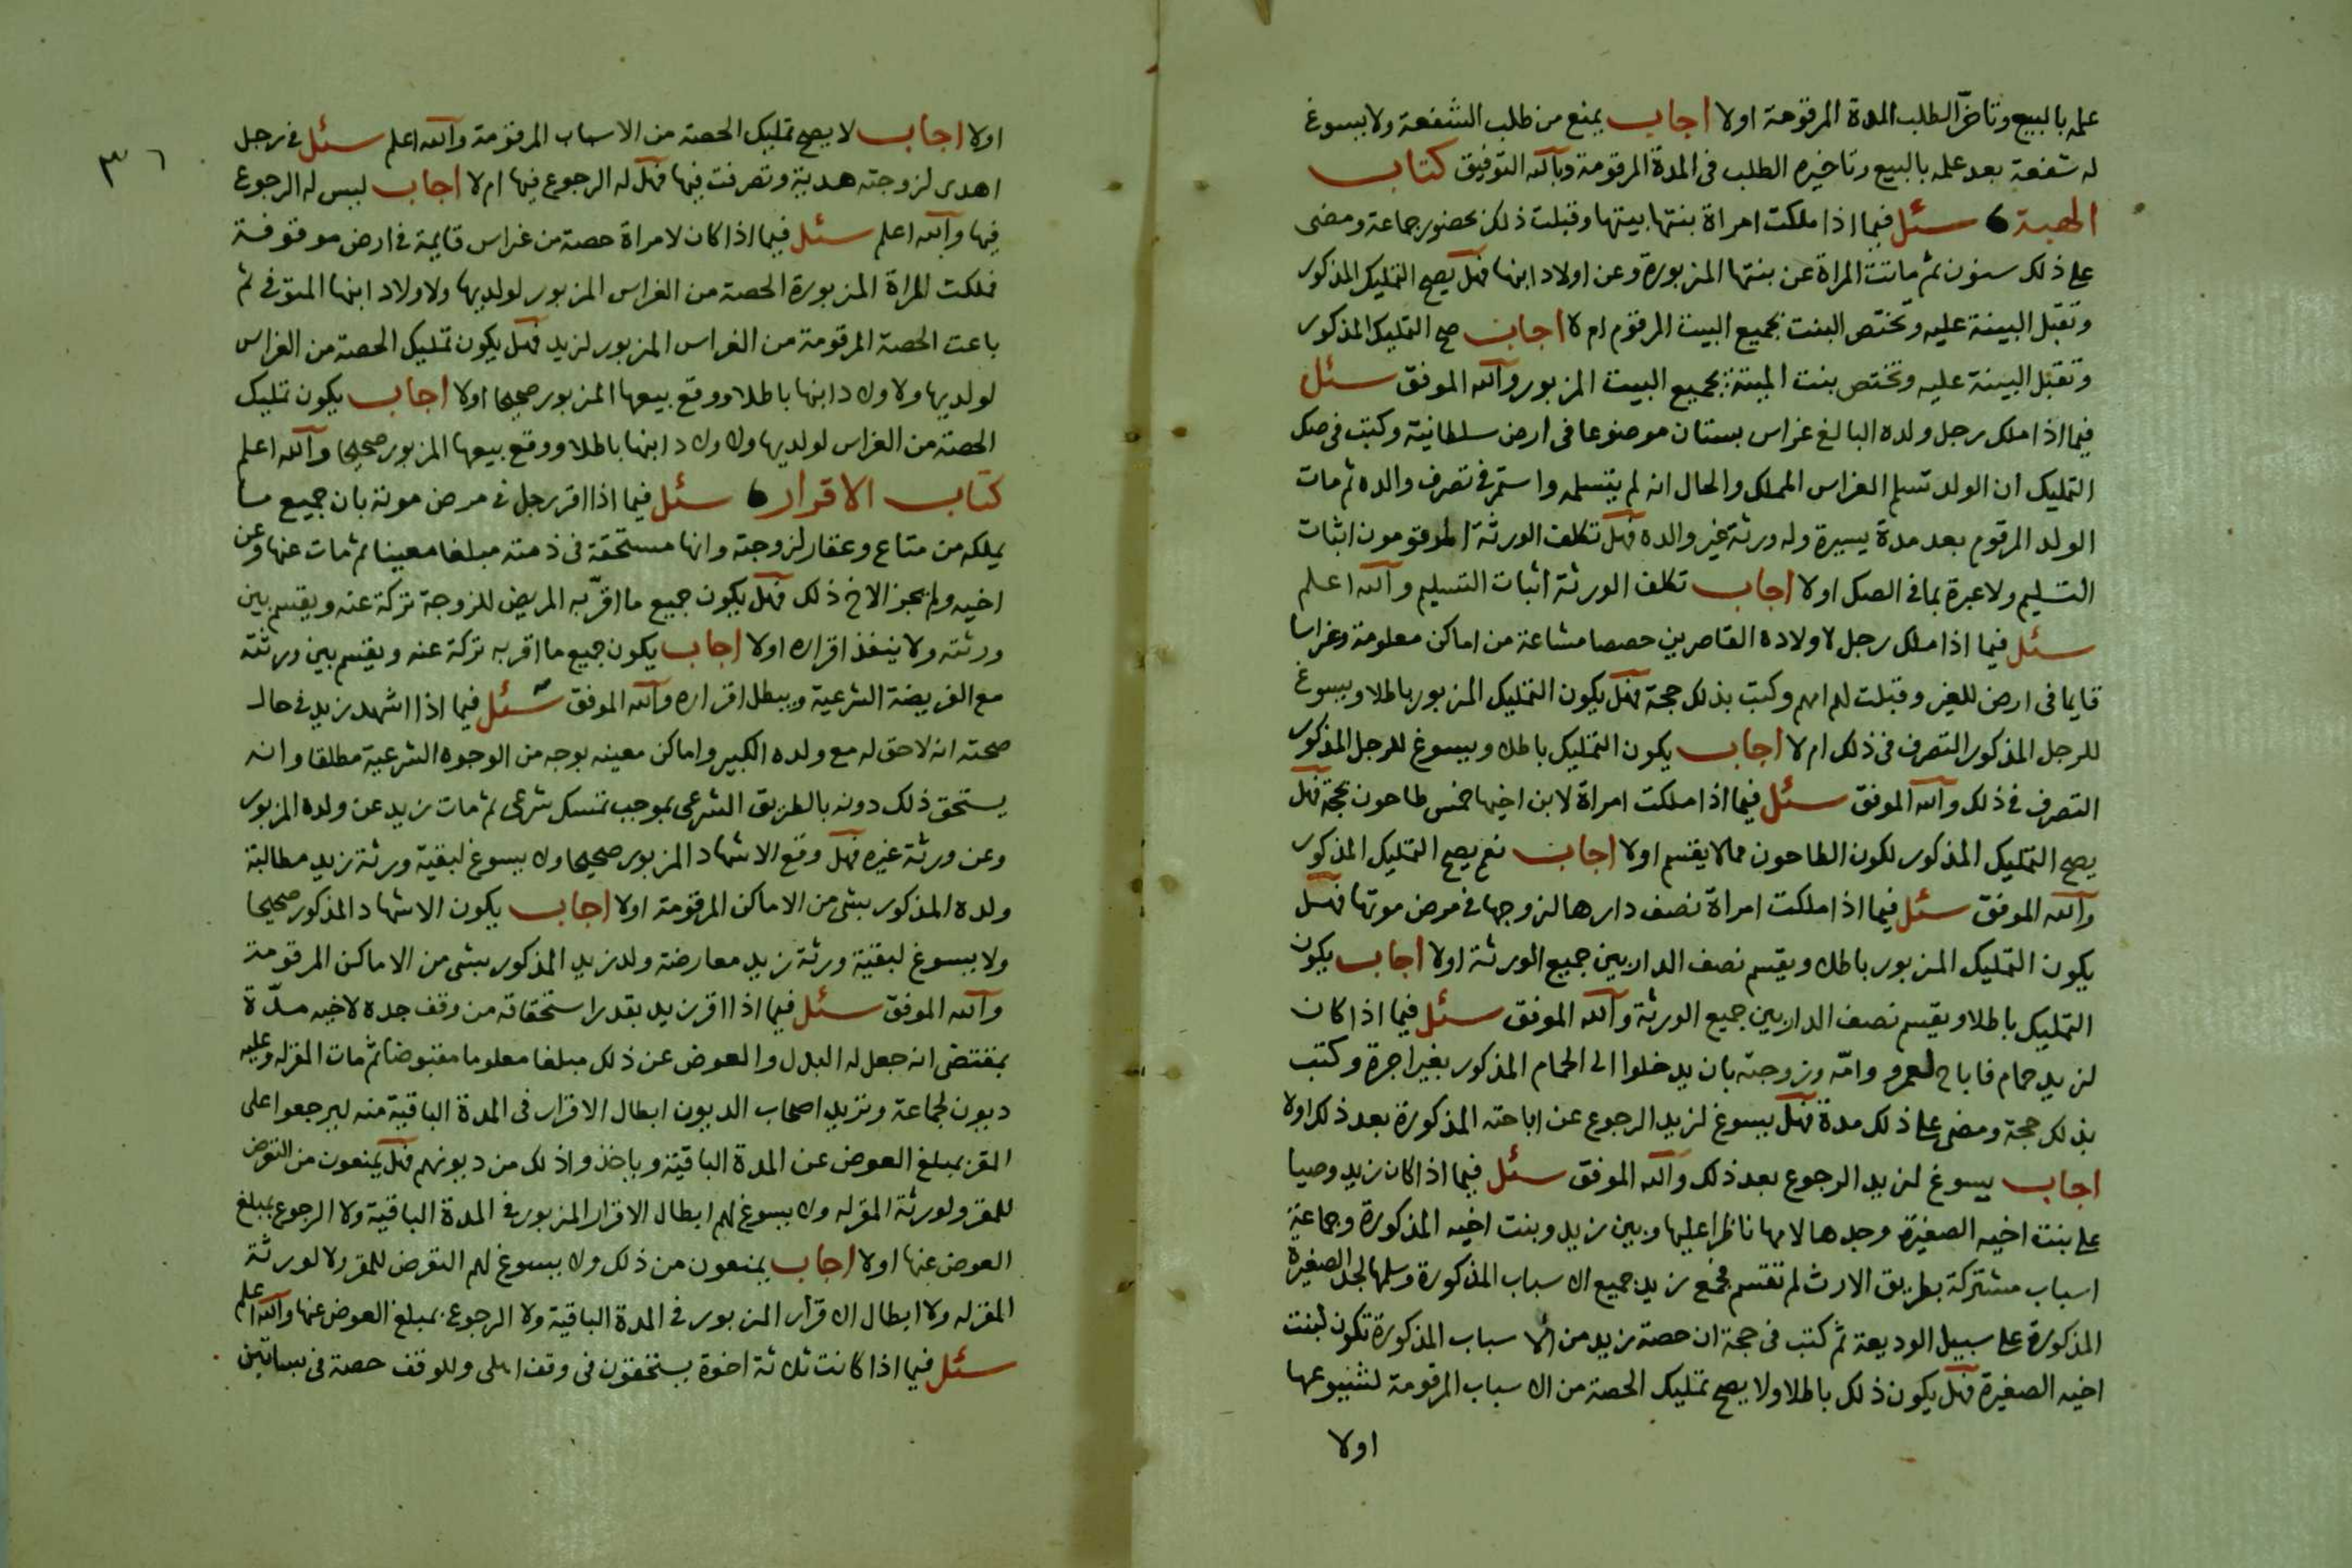 علمه بالبيع وتاخر الطلب المدة المرقومة اولا اجاب يمنع من طلب الشفعة ولا يسوغ
له شفعة بعد علمه بالبيع وتاخيره الطلب فى المدة المرقومة وبالله التوفيق كتاب
الهبة سئل فيما اذا ملكت امراة بنتها بيتها وقبلت ذلك بحضور جماعة ومضى
على ذلك سنون ثم ماتت المراة عن بنتها المزبورة وعن اولاد ابنها فهل يصح التمليك المذكور
وتقبل البينة عليه وتختص البنت بجميع البيت المرقوم ام لا اجاب صح التمليك المذكور
وتقبل البينة عليه وتختص بنت الميتة بجميع البيت المزبور والله الموفق سئل
فيما اذا ملك رجل ولده البالغ غراس بستان موضوعا فى ارض سلطانية وكتب فى صك
التمليك ان الولد تسلم الغراس المملك والحال انه لم يتسلمه واستمر فى تصرف والده ثم مات
الولد المرقوم بعد مدة يسيرة وله ورثة غير والده فهل تكلف الورثة المرقومون اثبات
التسليم ولا عبرة بما فى الصك اولا اجاب تكلف الورثة اثبات التسليم والله اعلم
سئل فيما اذا ملك رجل لاولاده القاصرين حصصا مشاعة من اماكن معلومة وغراسا
قايما فى ارض للغير وقبلت لهم امهم وكتب بذلك حجة فهل يكون التمليك المزبور باطلا ويسوغ
للرجل المذكور التصرف فى ذلك ام لا اجاب يكون التمليك باطلا ويسوغ للرجل المذكور
التصرف فى ذلك والله الموفق سئل فيما اذا ملكت امراة لابن اخيها خمس طاحون بحجة فهل
يصح التمليك المذكور لكون الطاحون مما لا يقسم اولا اجاب نعم يصح التمليك المذكور
والله الموفق سئل فيما اذا ملكت امراة نصف دارها لزوجها فى مرض موتها فهل
يكون التمليك المزبور باطلا ويقسم نصف الدار بين جميع الورثة اولا اجاب يكون
التمليك باطلا ويقسم نصف الدار بين جميع الورثة والله الموفق سئل فيما اذا كان
لزيد حمام فاباح لعمرو وامه وزوجته بان يدخلوا الى الحمام المذكور بغير اجرة وكتب
بذلك حجة ومضى على ذلك مدة فهل يسوغ لزيد الرجوع عن اباحته المذكورة بعد ذلك اولا
اجاب يسوغ لزيد الرجوع بعد ذلك والله الموفق سئل فيما اذا كان زيد وصيا
على بنت اخيه الصغيرة وجدها لامها ناظرا عليها وبين زيد وبنت اخيه المذكورة وجماعة
اسباب مشتركة بطريق الارث لم تقتسم فجمع زيد جميع الاسباب المذكورة وسلمها لجد الصغيرة
المذكورة على سبيل الوديعة ثم كتب فى حجة ان حصة زيد من الاسباب المذكورة تكون لبنت
اخيه الصغيرة فهل يكون ذلك باطلا ولا يصح تمليك الحصة من الاسباب المرقومة لشيوعها
اولا
٣٦
اولا اجاب لا يصح تمليك الحصة من الاسباب المرقومة والله اعلم سئل فى رجل
اهدى لزوجته هدية وتصرفت فيها فهل له الرجوع فيها ام لا اجاب ليس له الرجوع
فيها والله اعلم سئل فيما اذا كان لامراة حصة من غراس قايمة فى ارض موقوفة
فملكت المراة المزبورة الحصة من الغراس المزبور لولديها ولاولاد ابنها المتوفى ثم
باعت الحصة المرقومة من الغراس المزبور لزيد فهل يكون تمليك الحصة من الغراس
لولديها ولاولاد ابنها باطلا ووقع بيعها المزبور صحيحا اولا اجاب يكون تمليك
الحصة من الغراس لولديها ولاولاد ابنها باطلا ووقع بيعها المزبور صحيحا والله اعلم
كتاب الاقرار سئل فيما اذا اقر رجل فى مرض موته بان جميع ما
يملكه من متاع وعقار لزوجته وانها مستحقة فى ذمته مبلغا معينا ثم مات عنها وعن
اخيه ولم يجز الاخ ذلك فهل يكون جميع ما اقر به المريض للزوجة تركة عنه ويقسم بين
ورثته ولا ينفذ اقراره اولا اجاب يكون جميع ما اقر به تركة عنه ويقسم بين ورثته
مع الفريضة الشرعية ويبطل اقراره والله الموفق سئل فيما اذا اشهد زيد فى حال
صحته انه لا حق له مع ولده الكبير واماكن معينه بوجه من الوجوه الشرعية مطلقا وانه
يستحق ذلك دونه بالطريق الشرعى بموجب تمسك شرعى ثم مات زيد عن ولده المزبور
وعن ورثة غيره فهل وقع الاشهاد المزبور صحيحا ولا يسوغ لبقية ورثة زيد مطالبة
ولده المذكور بشى من الاماكن المرقومة اولا اجاب يكون الاشهاد المذكور صحيحا
ولا يسوغ لبقية ورثة زيد معارضة ولد زيد المذكور بشى من الاماكن المرقومة
والله الموفق سئل فيما اذا اقر زيد بقدر استحقاقه من وقف جده لاخيه مدة
بمقتضى انه جعل له البدل والعوض عن ذلك مبلغا معلوما مقبوضا ثم مات المقر له وعليه
ديون لجماعة وتريد اصحاب الديون ابطال الاقرار فى المدة الباقية منه ليرجعوا على
المقر بمبلغ العوض عن المدة الباقية وياخذوا ذلك من ديونهم فهل يمنعون من التعرض
للمقر ولورثة المقر له ولا يسوغ لهم ابطال الاقرار المزبور فى المدة الباقية ولا الرجوع بمبلغ
العوض عنها اولا اجاب يمنعون من ذلك ولا يسوغ لهم التعرض للمقر ولا لورثة
المقر له ولا ابطال الاقرار المزبور فى المدة الباقية ولا الرجوع بمبلغ العوض عنها والله اعلم
سئل فيما اذا كانت ثلاثة اخوة يستحقون فى وقف اهلى وللوقف حصة فى بساتين